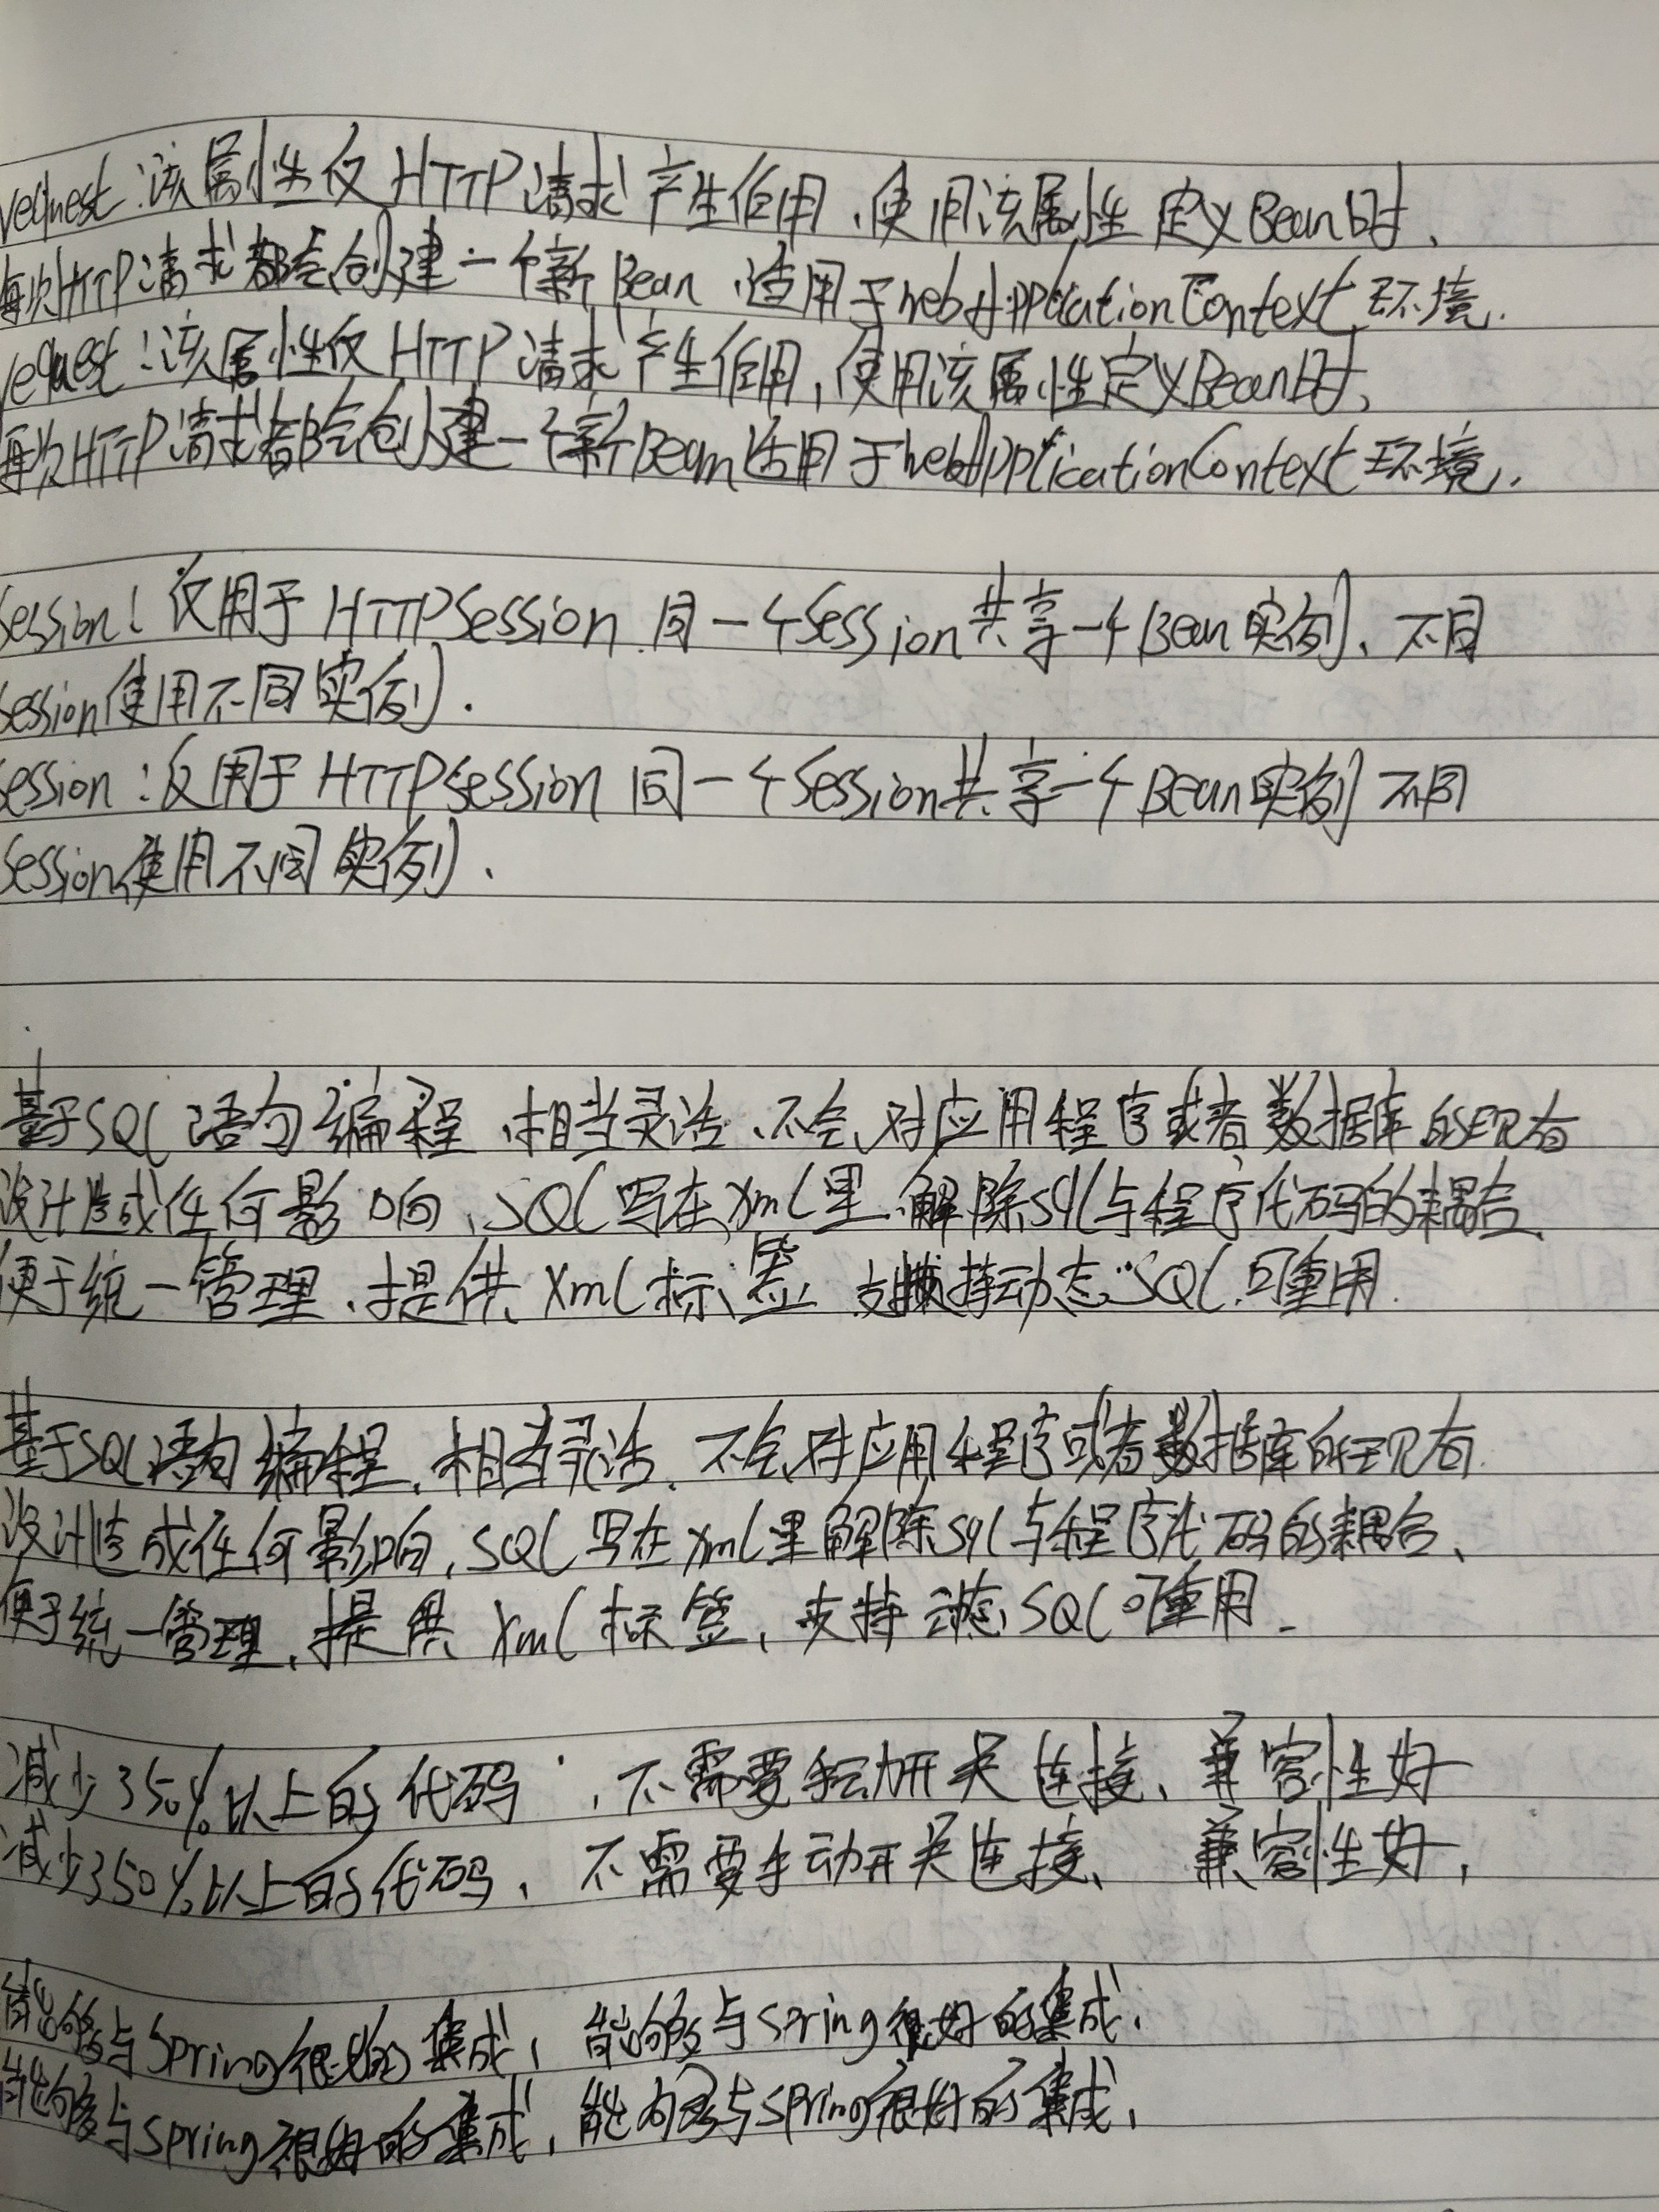 request:该属性仅HTTP请求产生作用,使用该属性定义Bean时,
每次HTTP请求都会创建一个新Bean,适用于webApplicationContext环境.
request:该属性仅HTTP请求产生作用,使用该属性定义Bean时,
每次HTTP请求都会创建一个新Bean适用于webApplicationContext环境.
session:仅用于HTTPSession.同一个Session共享一个Bean实例,不同
session使用不同实例.
session:仅用于HTTPSession同一个Session共享一个Bean实例 不同
session使用不同实例.
基于SQL语句编程,相当灵活,不会对应用程序或者数据库的现有
设计造成任何影响,SQL写在xml里,解除sql与程序代码的耦合,
便于统一管理,提供xml标签 支持动态SQL,可重用.
基于SQL语句编程,相当灵活,不会对应用程序或者数据库的现有.
设计造成任何影响,SQL写在xml里解除sql与程序代码的耦合,
便于统一管理,提供xml标签,支持动态SQL可重用.
减少350%以上的代码,不需要手动开关连接,兼容性好
减少350%以上的代码,不需要手动开关连接,兼容性好,
能够与Spring很好的集成,能够与Spring很好的集成,
能够与Spring很好的集成,能够与Spring很好的集成,